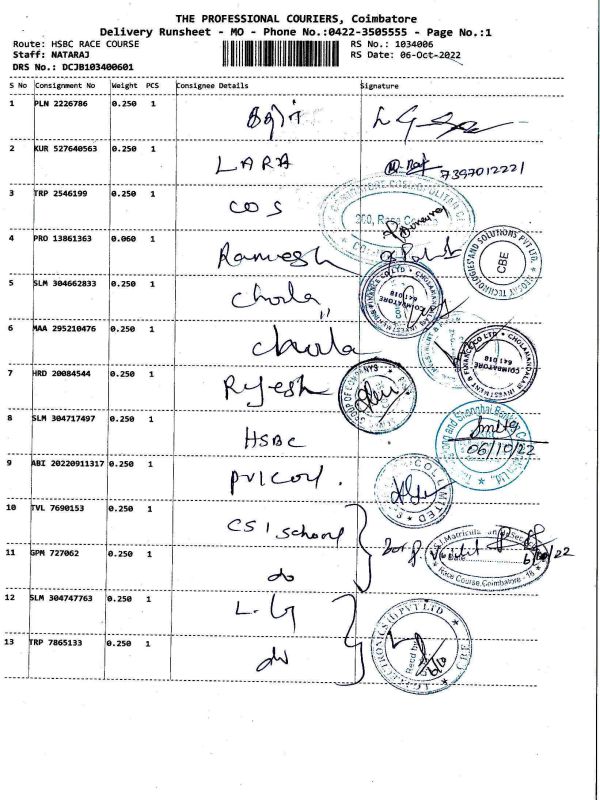 THE PROFESSIONAL COURIERS, Coimbatore
Delivery Runsheet - MO - Phone No.:0422-3505555 - Page No.:1
Route: HSBC RACE COURSE RS No.: 1034006
Staff: NATARAJ RS Date: 06-Oct-2022
DRS No.: DCJB103400601
S No Consignment No Weight PCS Consignee Details Signature
1 PLN 2226786 0.250 1
2 KUR 527640563 0.250 1 LARA 7397012221
3 TRP 2546199 0.250 1 COS
4 PRO 13861363 0.060 1 Ramesh
STOCHY TECHNOLOGIES AND SOLUTIONS PVT LTD. CBE
5 SLM 304662833 0.250 1 Chola
CHOLAMANDALAM INVESTMENT & FINANCE CO LTD COIMBATORE 641 018
6 MAA 295210476 0.250 1 Chola
CHOLAMANDALAM INVESTMENT & FINANCE CO LTD COIMBATORE 641 018
7 HRD 20084544 0.250 1 Rajesh
8 SLM 304717497 0.250 1 HSBC
06/10/22
9 ABI 20220911317 0.250 1
10 TVL 7690153 0.250 1 CSI School
Date
Race Course, Coimbatore - 18
11 GPM 727062 0.250 1 do
12 SLM 304747763 0.250 1 L.G
LG ELECTRONICS (I) PVT LTD CBE
Recd by
13 TRP 7865133 0.250 1 do